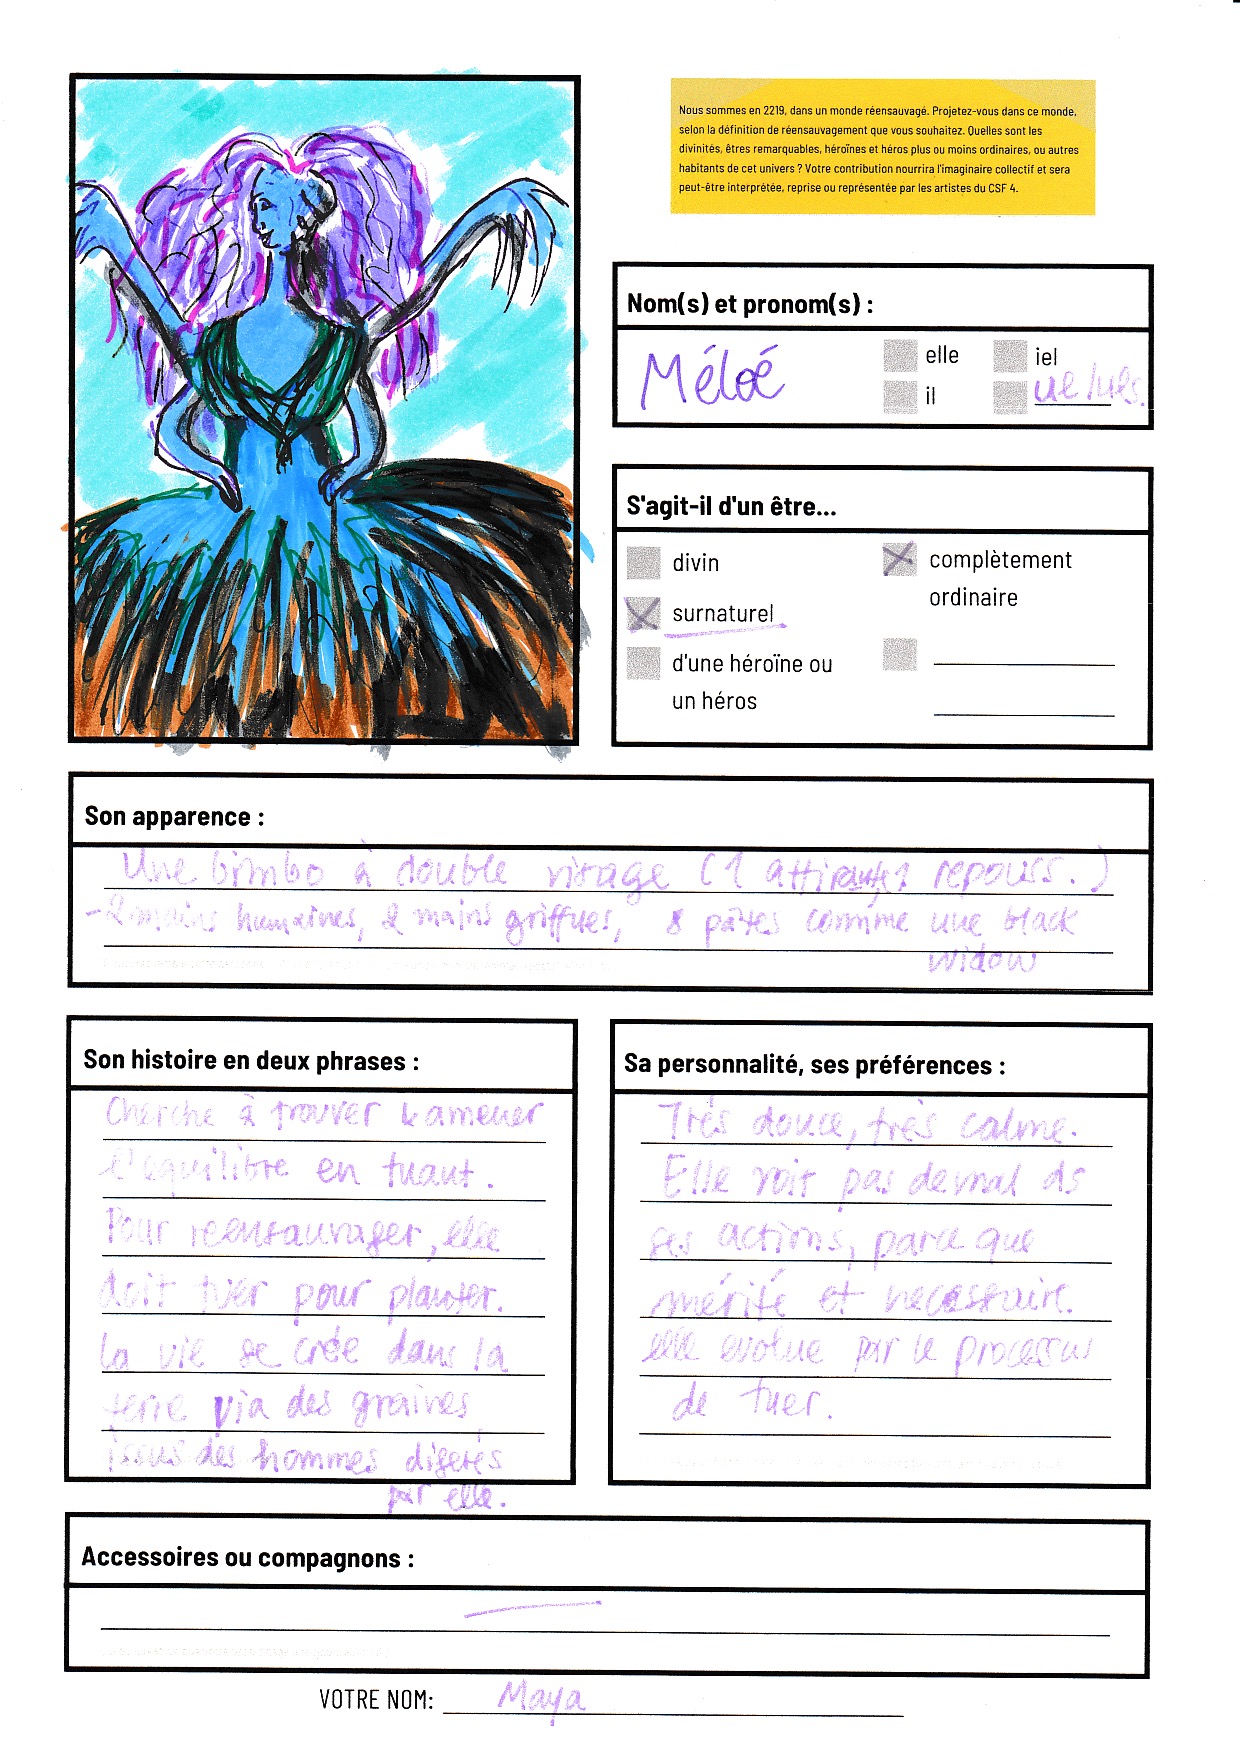 Nous sommes en 2219, dans un monde réensauvagé. Projetez-vous dans ce monde,
selon la définition de réensauvagement que vous souhaitez. Quelles sont les
divinités, êtres remarquables, héroïnes et héros plus ou moins ordinaires, ou autres
habitants de cet univers ? Votre contribution nourrira l'imaginaire collectif et sera
peut-être interprétée, reprise ou représentée par les artistes du CSF 4.
Nom(s) et pronom(s) :
Méloé
elle
iel
il
S'agit-il d'un être...
divin
complètement
ordinaire
surnaturel
d'une héroïne ou
un héros
Son apparence :
Une bimbo à double visage (1 attirant 1 repouss.)
- 2 mains humaines, 2 mains griffues, 8 pâtes comme une black
widow
Son histoire en deux phrases :
Cherche à trouver & amener
l'équilibre en tuant.
Pour réensauvager, elle
doit tuer pour planter.
La vie se crée dans la
terre via des graines
issus des hommes digérés
par elle.
Sa personnalité, ses préférences :
Très douce, très calme.
Elle voit pas de mal ds
ses actions, parce que
mérité et necessaire.
elle evolue par le processus
de tuer.
Accessoires ou compagnons :
VOTRE NOM: Maya